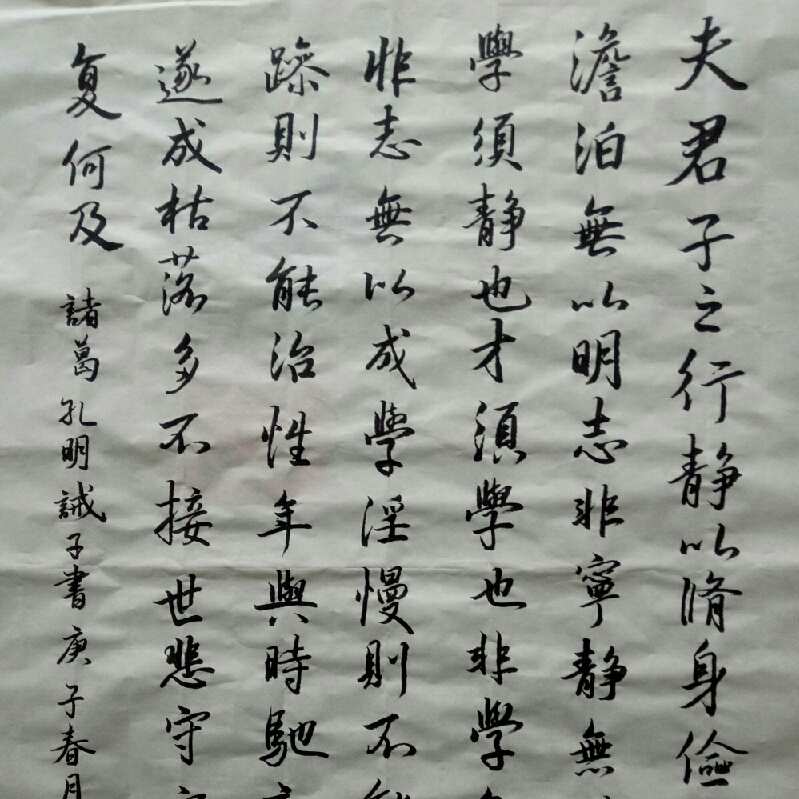 夫君子之行静以脩身儉
澹泊無以明志非寧静無
學須静也才須學也非學
非志無以成學淫慢則不
躁則不能治性年與時馳
遂成枯落多不接世悲守
复何及
諸葛孔明誡子書庚子春月